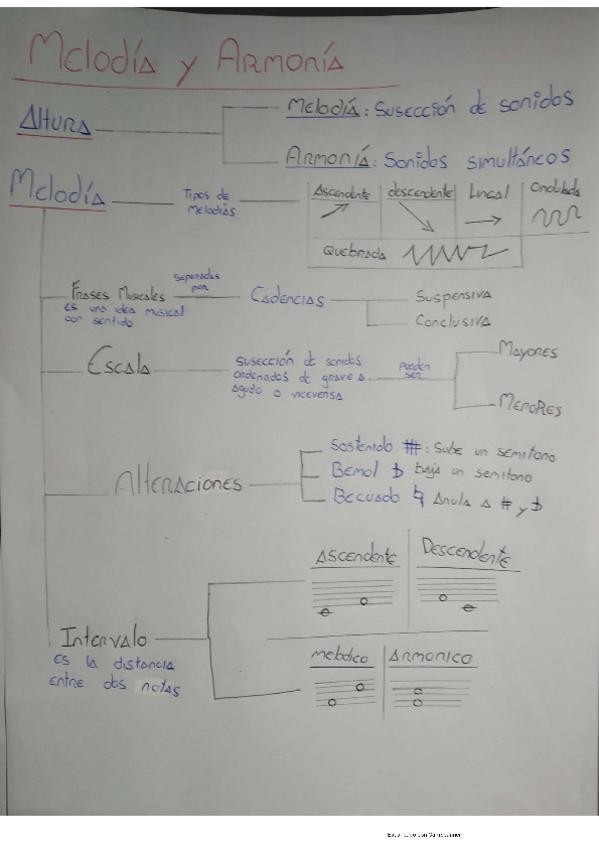 Melodía y Armonía
Altura
Melodía: Susección de sonidos
Armonía: Sonidos simultáneos
Melodía
Tipos de
Melodías
Ascendente descendente Lineal Ondulada
Quebrada
Frases Musicales
es una idea musical
con sentido
separadas
por
Cadencias
Suspensiva
Conclusiva
Escala
susección de sonidos
ordenados de grave a
agudo o viceversa
pueden
ser
Mayores
Menores
Alteraciones
Sostenido #: Sube un semitono
Bemol ♭ baja un semitono
Becuado ♮ Anula a # y ♭
Ascendente Descendente
Intervalo
es la distancia
entre dos notas
melódico Armonico